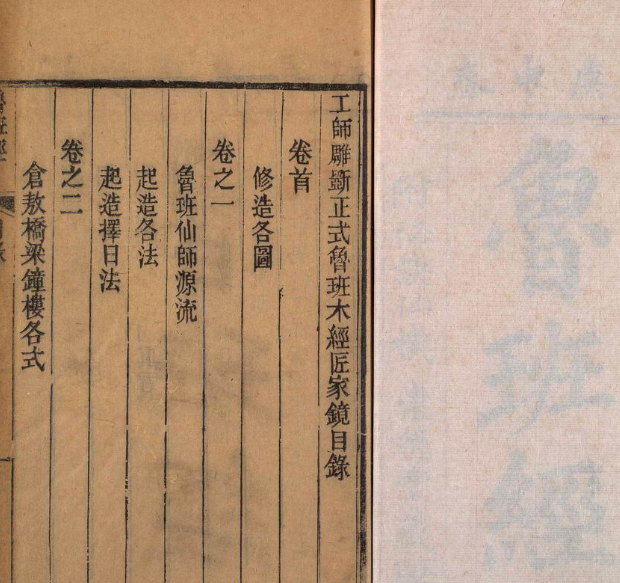 魯班經
工師雕斲正式魯班木經匠家鏡目錄
卷首
修造各圖
卷之一
魯班仙師源流
起造各法
起造擇日法
卷之二
倉敖橋梁鐘樓各式
魯班經